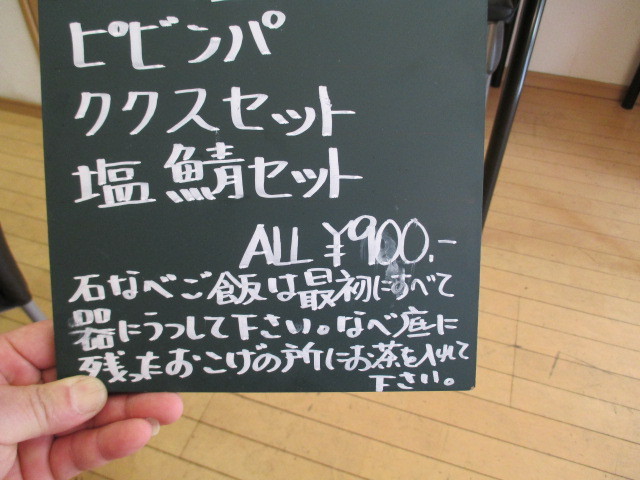 ピビンパ
ククスセット
塩鯖セット
ALL ¥900.-
石なべご飯は最初にすべて
器にうつして下さい。なべ底に
残ったおこげの所にお茶を入れて
下さい。